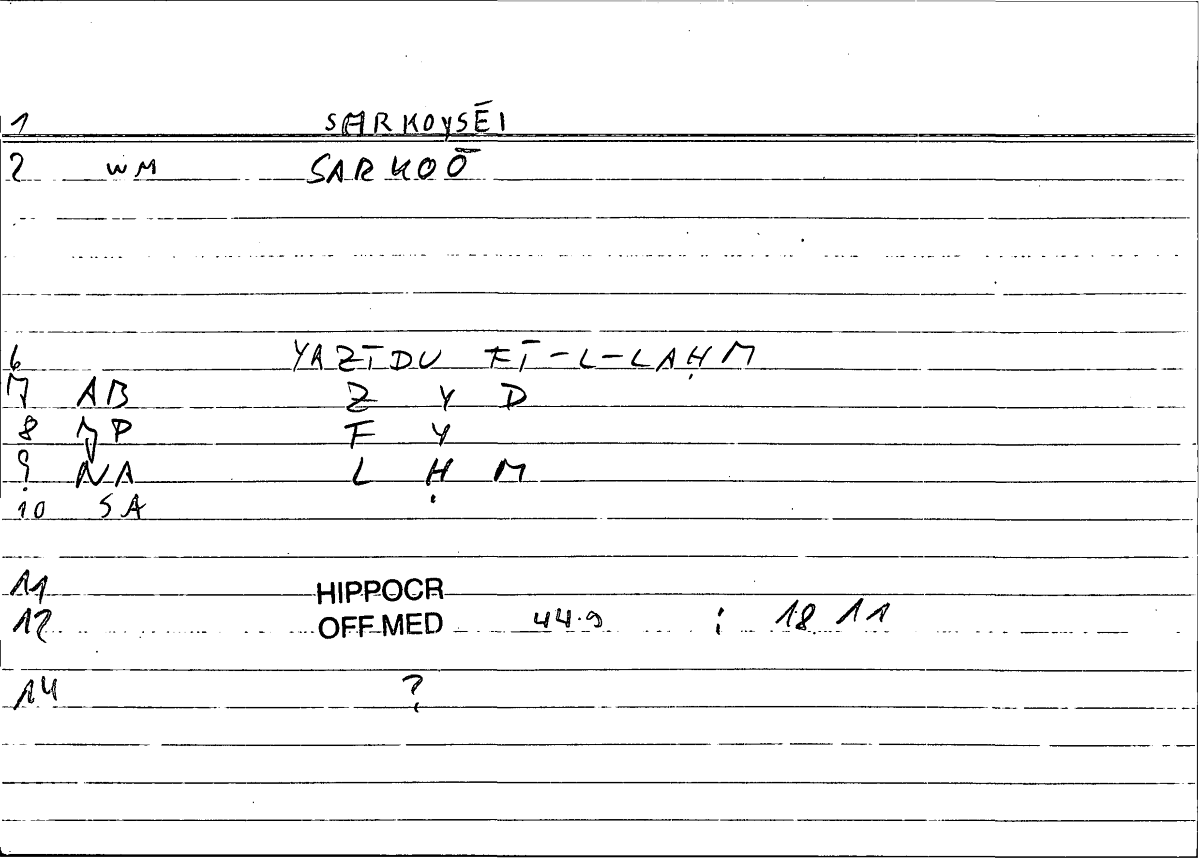 1 SARKOYSĒI
2 WM SARKOŌ
6 YAZĪDU FĪ-L-LAḤM
7 AB Z Y D
8 NP F Y
9 NA L Ḥ M
10 SA
11 HIPPOCR
12 OFF.MED 44.9 ; 18 11
14 ?